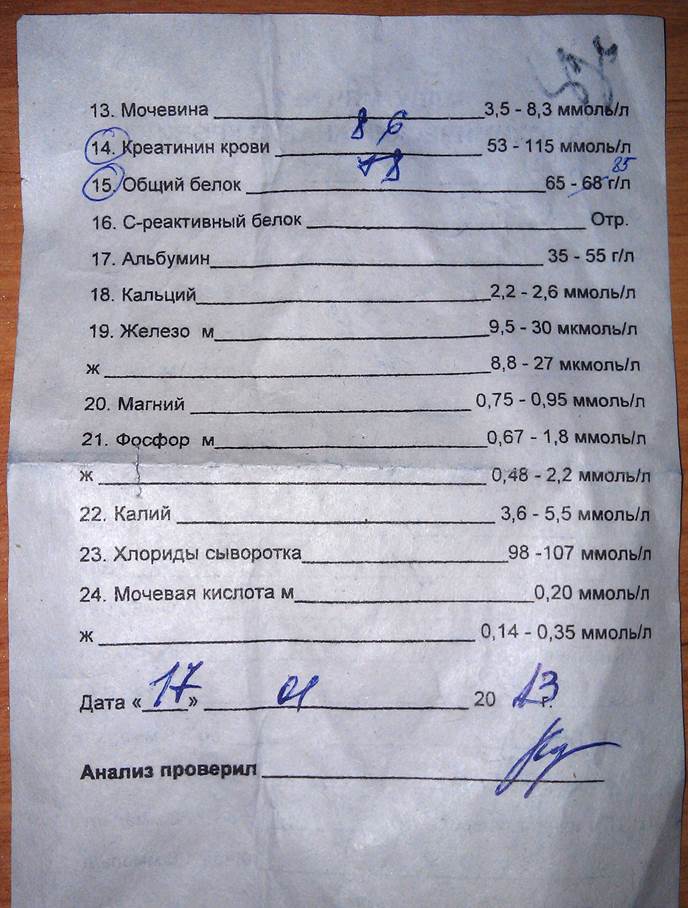 13. Мочевина 3,5 - 8,3 ммоль/л
14. Креатинин крови 86 53 - 115 ммоль/л
15. Общий белок 78 65 - 68 85 г/л
16. С-реактивный белок Отр.
17. Альбумин 35 - 55 г/л
18. Кальций 2,2 - 2,6 ммоль/л
19. Железо м 9,5 - 30 мкмоль/л
ж 8,8 - 27 мкмоль/л
20. Магний 0,75 - 0,95 ммоль/л
21. Фосфор м 0,67 - 1,8 ммоль/л
ж 0,48 - 2,2 ммоль/л
22. Калий 3,6 - 5,5 ммоль/л
23. Хлориды сыворотка 98 -107 ммоль/л
24. Мочевая кислота м 0,20 ммоль/л
ж 0,14 - 0,35 ммоль/л
Дата «17» 01 20 13 г.
Анализ проверил